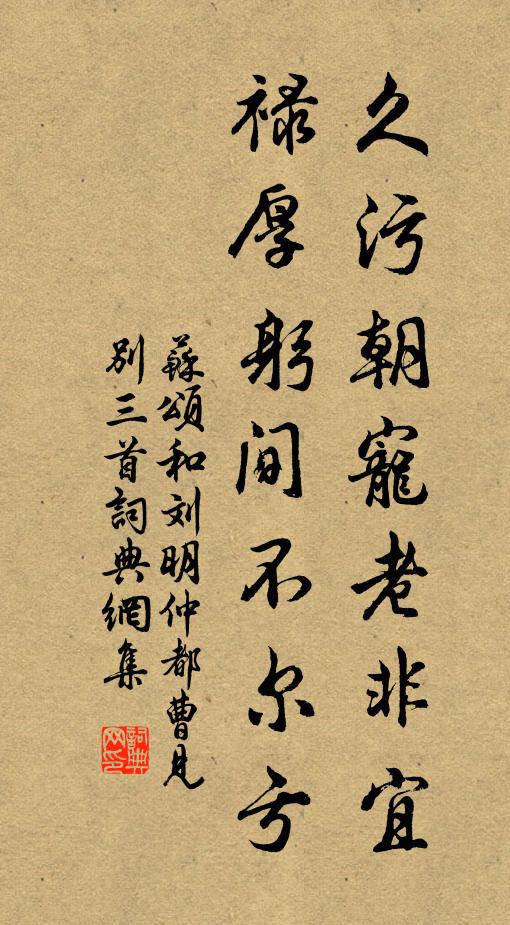 久污朝寵老非宜
禄厚躬间不尔亏
蘇頌和刘明仲都曹見
别三首詞典網集
詞典网印